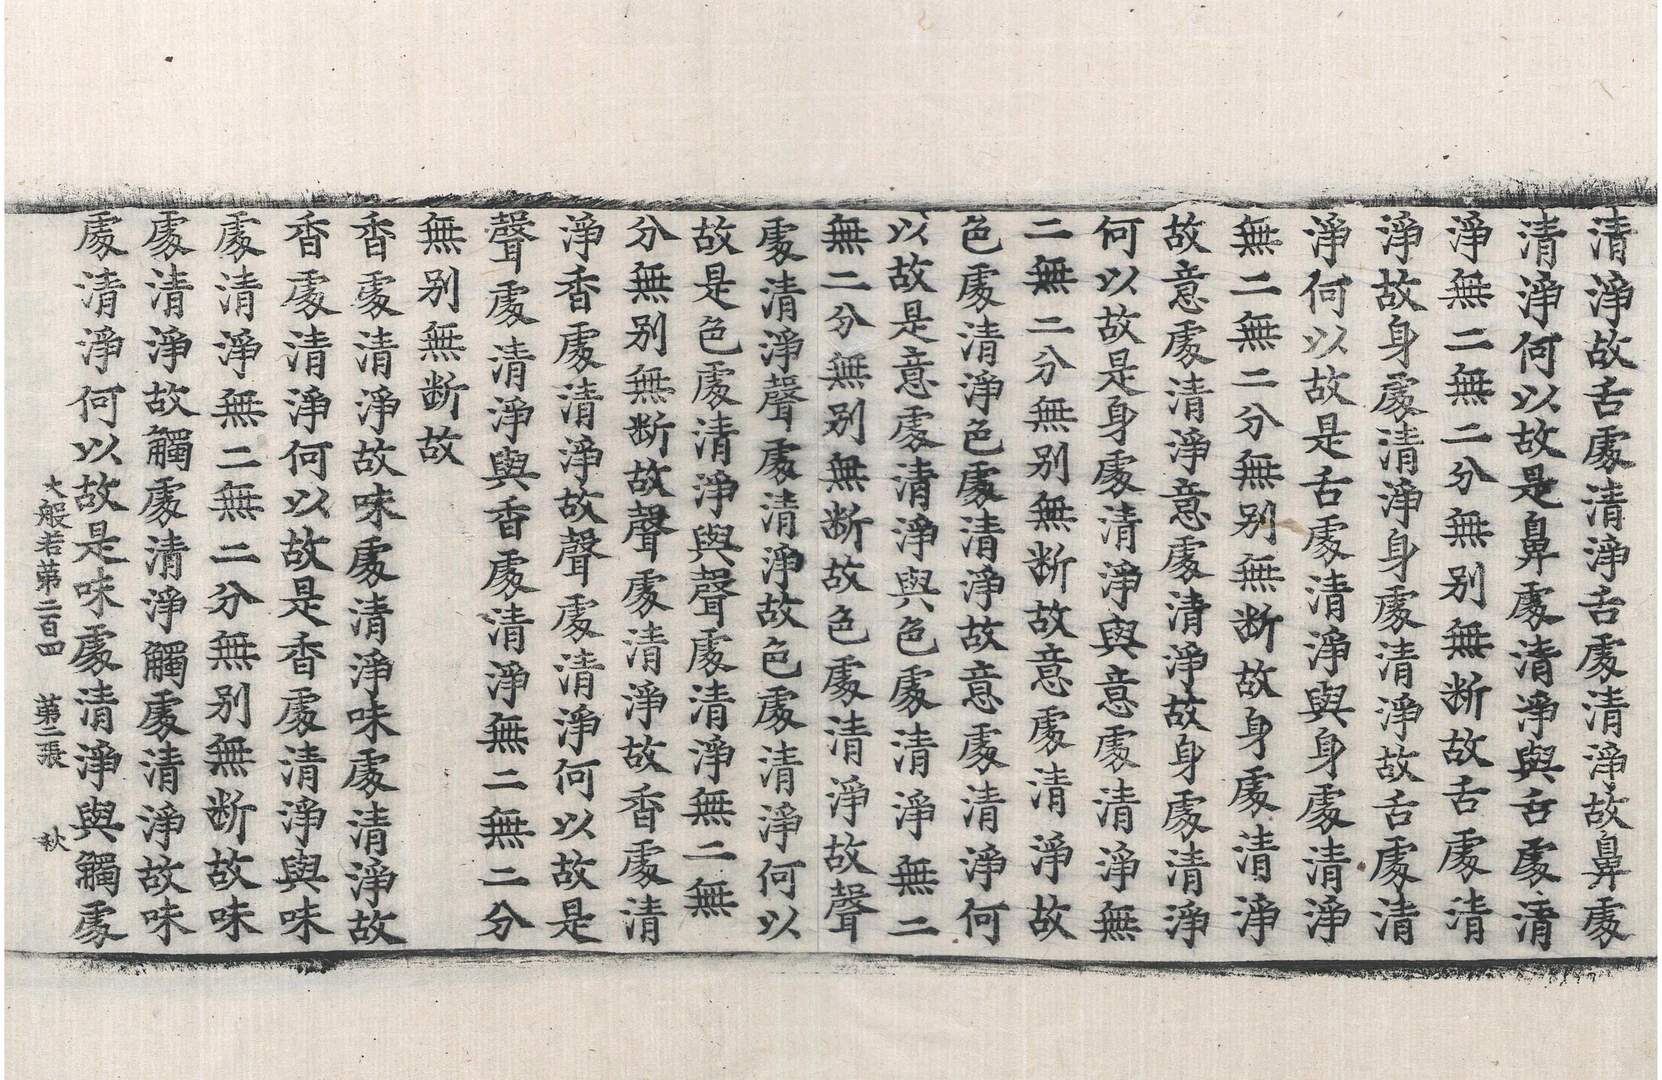 清淨故舌處清淨舌處清淨故鼻處
清淨何以故是鼻處清淨與舌處清
淨無二無二分無别無断故舌處清
淨故身處清淨身處清淨故舌處清
淨何以故是舌處清淨與身處清淨
無二無二分無别無断故身處清淨
故意處清淨意處清淨故身處清淨
何以故是身處清淨與意處清淨無
二無二分無别無断故意處清淨故
色處清淨色處清淨故意處清淨何
以故是意處清淨與色處清淨無二
無二分無别無断故色處清淨故聲
處清淨聲處清淨故色處清淨何以
故是色處清淨與聲處清淨無二無
分無别無断故聲處清淨故香處清
淨香處清淨故聲處清淨何以故是
聲處清淨與香處清淨無二無二分
無别無断故
香處清淨故味處清淨味處清淨故
香處清淨何以故是香處清淨與味
處清淨無二無二分無别無断故味
處清淨故觸處清淨觸處清淨故味
處清淨何以故是味處清淨與觸處
大般若第二百四 第二張 秋